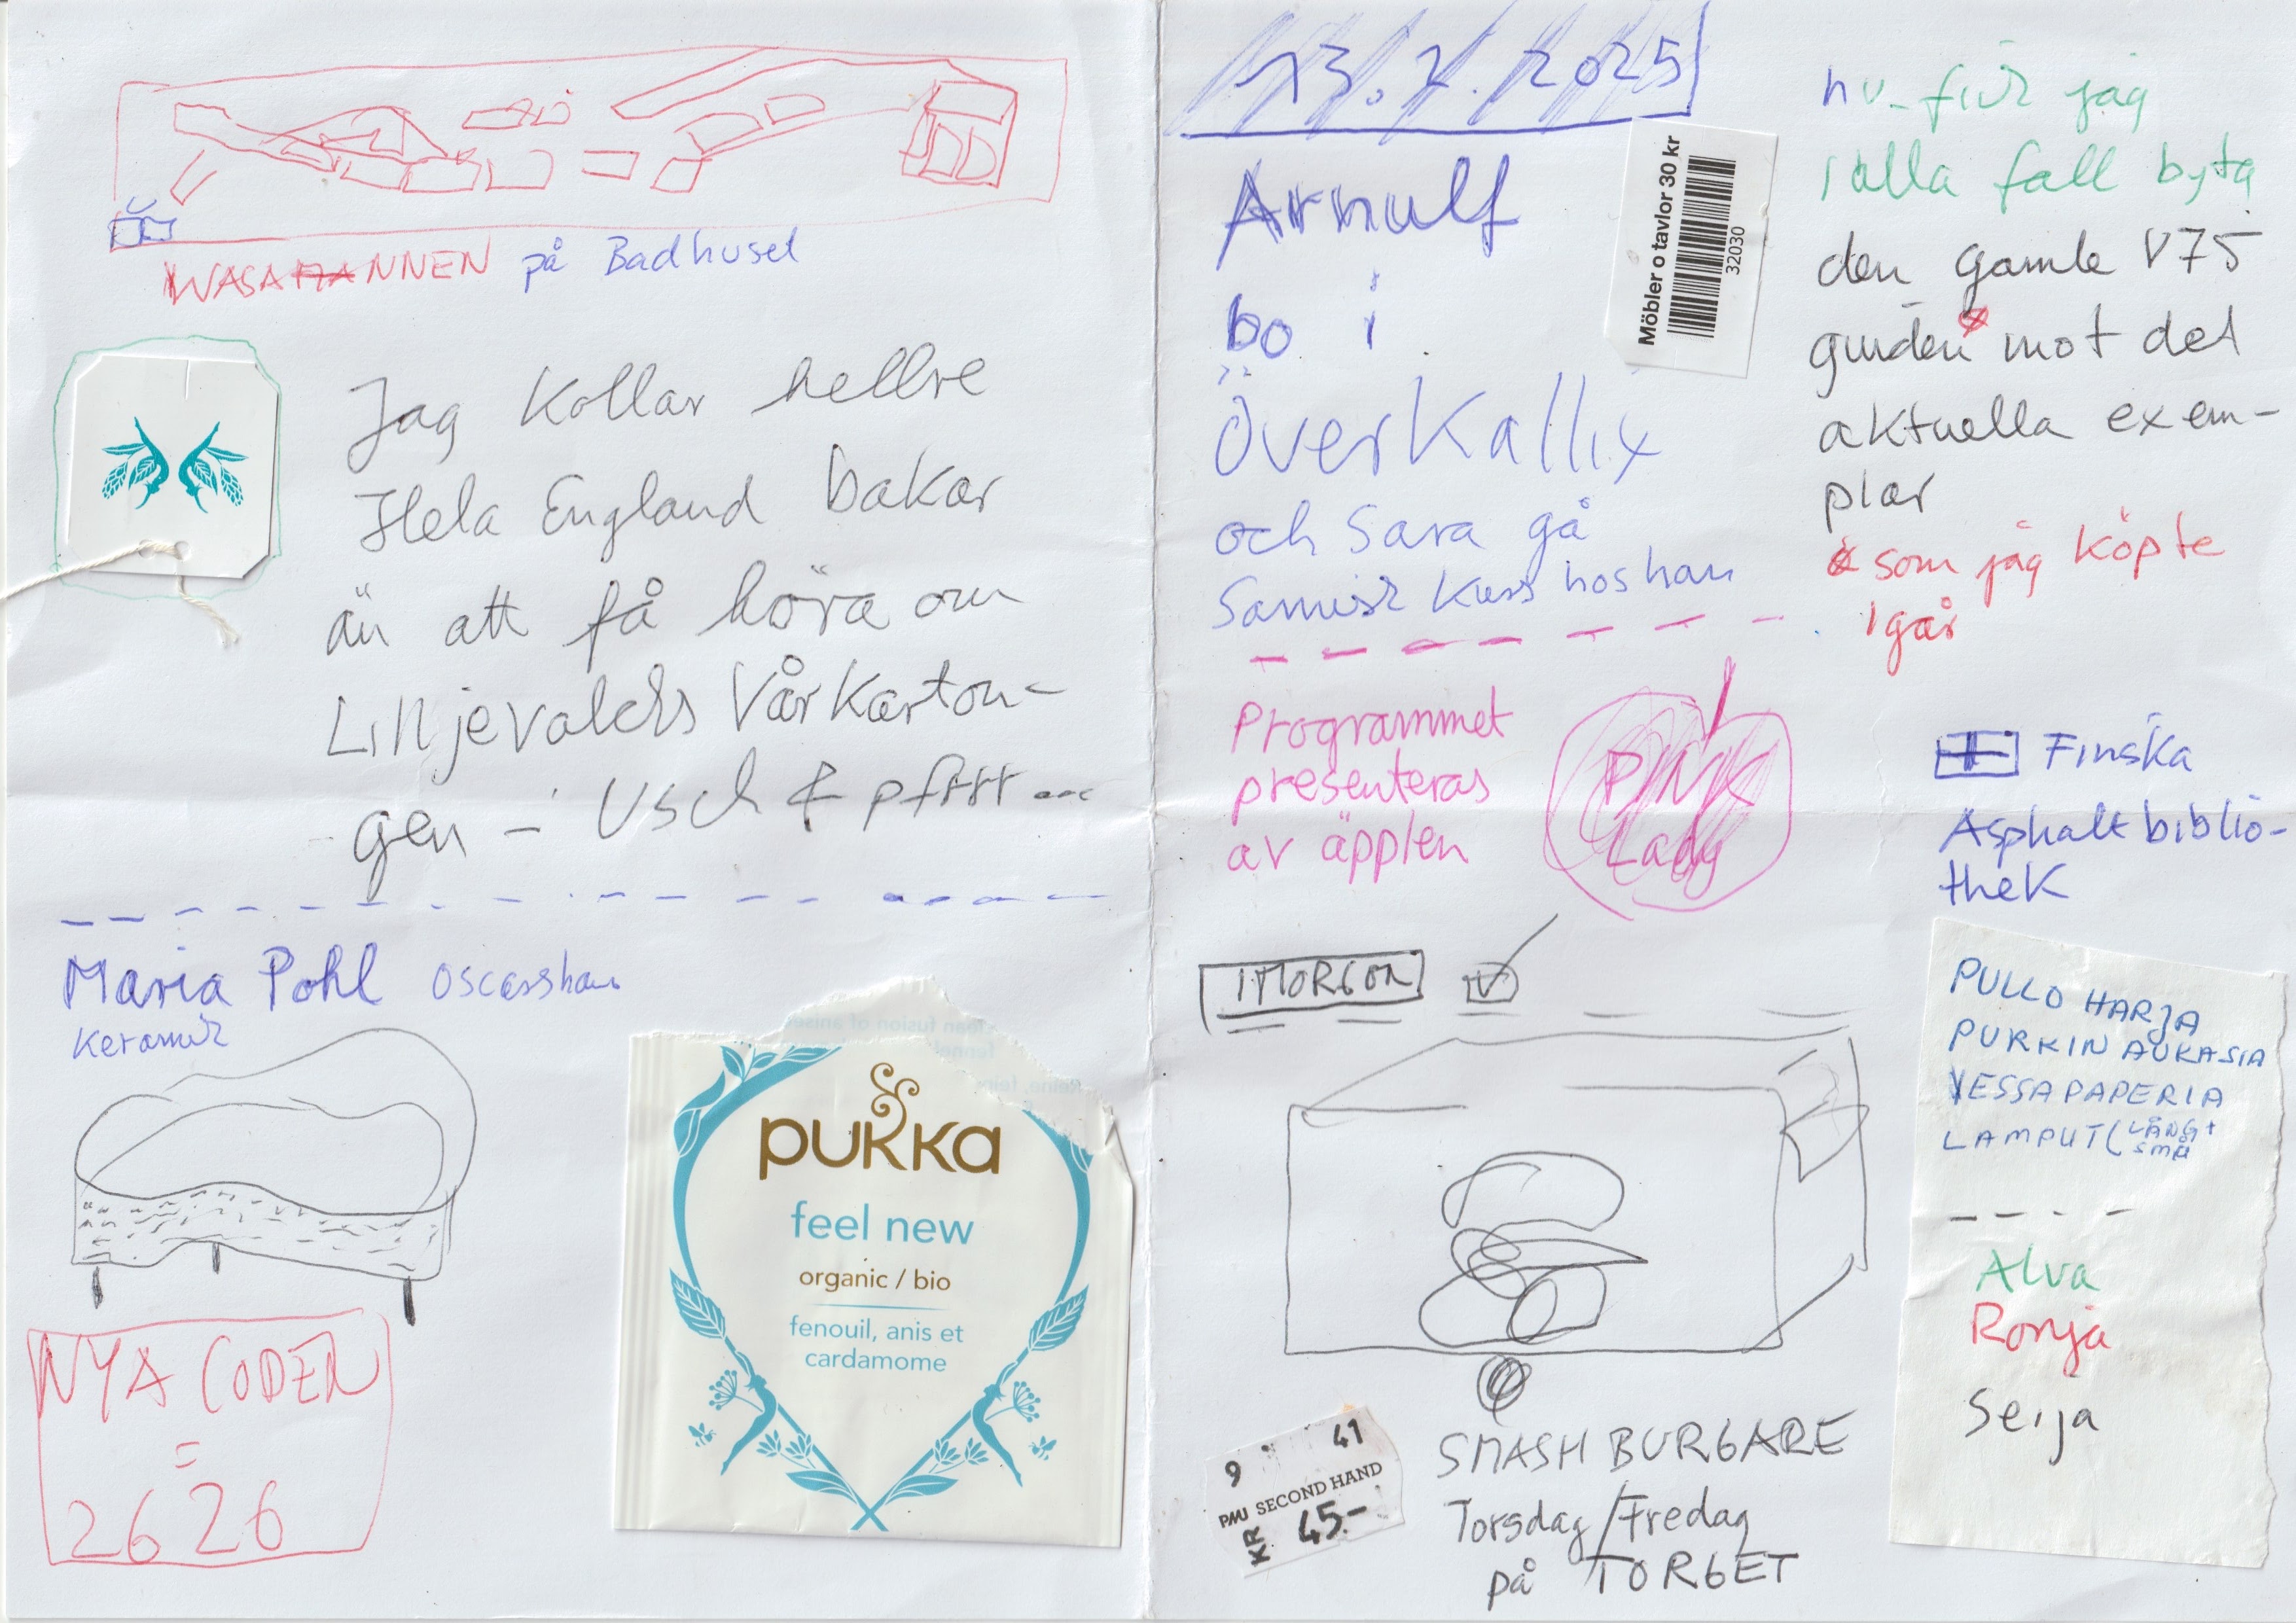 WASAMANNEN på Badhuset
Jag kollar hellre
Hela England bakar
än att få höra om
Liljevalchs Vårkarton-
gen – Usch & pfttt ...
Maria Pohl Oscarshan
Keramik
NYA CODEN
=
2626
pukka
feel new
organic / bio
fenouil, anis et
cardamome
13.2.2025
Arnulf
bo i
Överkallix
och Sara gå
Samisk Kurs hos han
Möbler o tavlor 30 kr
32030
Programmet
presenteras
av äpplen
PINK
Lady
IMORGON
9 41
PMU SECOND HAND
KR 45.-
SMASH BURGARE
Torsdag/Fredag
på TORGET
nu fick jag
i alla fall byta
den gamle V75
guiden mot det
aktuella exem-
plar
som jag köpte
igår
Finska
Asphaltbiblio-
thek
PULLO HARJA
PURKIN AUKASIA
VESSAPAPERIA
LAMPUT (LÅNG+
SMÅ
Alva
Ronja
Seija